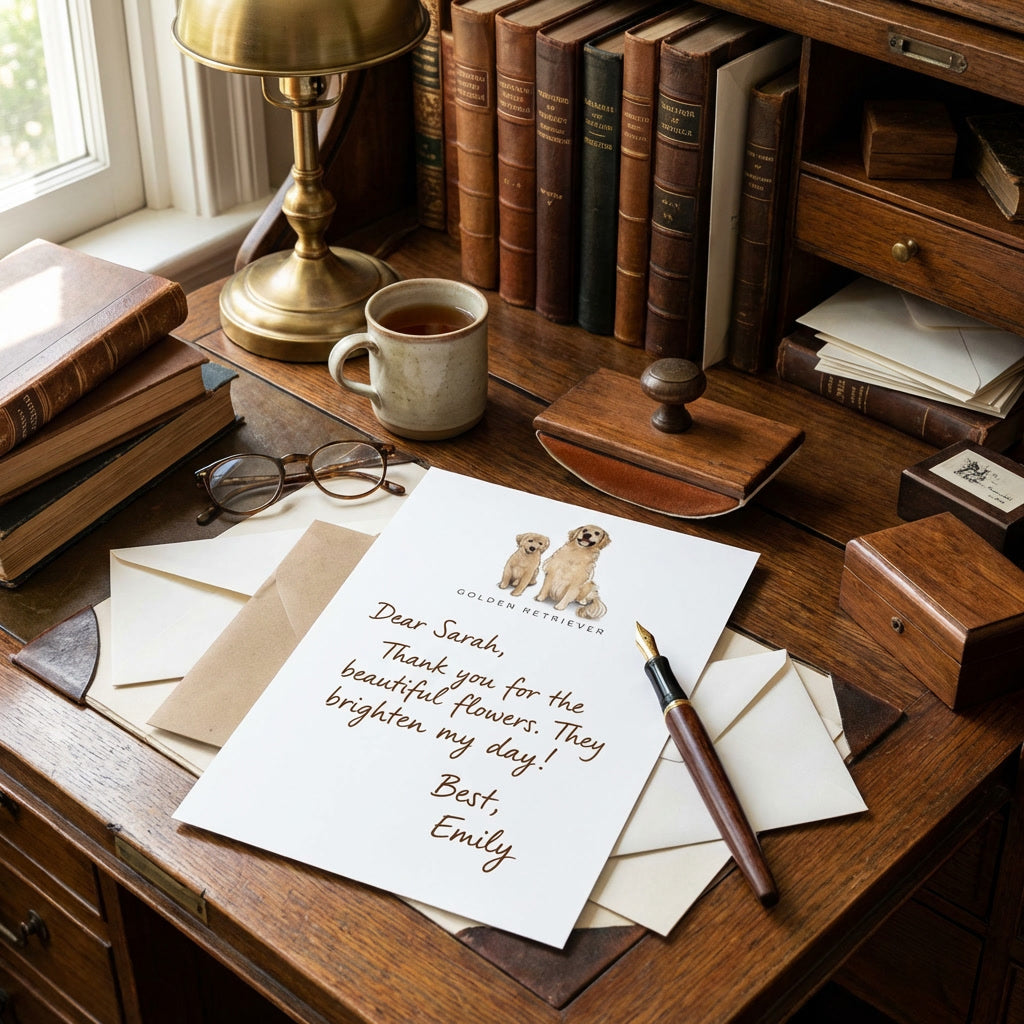 GOLDEN RETRIEVER
Dear Sarah,
Thank you for the
beautiful flowers. They
brighten my day!
Best,
Emily